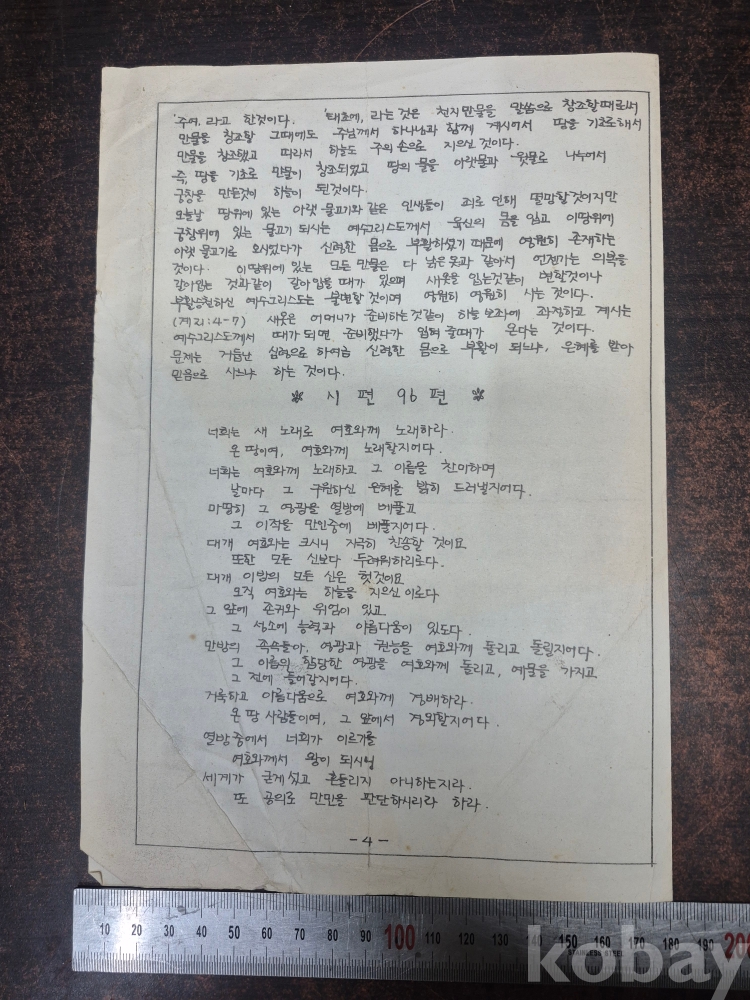 '주여, 라고 한것이다. '태초에, 라는것은 천지만물을 말씀으로 창조할때로써
만물을 창조할 그때에도 주님께서 하나님과 함께 계시어서 땅을 기초로해서
만물을 창조했고 따라서 하늘도 주의 손으로 지으신 것이다.
즉, 땅을 기초로 만물이 창조되었고 땅의 물을 아랫물과 윗물로 나누어서
궁창을 만든것이 하늘이 된것이다.
오늘날 땅위에 있는 아랫 물고기와 같은 인생들이 죄로 인해 멸망할것이지만
궁창위에 있는 물고기 되시는 예수그리스도께서 육신의 몸을 입고 이땅위에
아랫 물고기로 오시었다가 신령한 몸으로 부활하셨기 때문에 영원히 존재하는
것이다. 이땅위에 있는 모든 만물은 다 낡은 옷과 같아서 언젠가는 의복을
갈아입는 것과같이 갈아입을 때가 있으며 새옷을 입는것같이 변할것이나
부활승천하신 예수그리스도는 불변할 것이며 영원히 영원히 사는 것이다.
(계21:4-7) 새옷은 어머니가 준비하는것같이 하늘보좌에 좌정하고 계시는
예수그리스도께서 때가 되면 준비했다가 입혀 줄때가 온다는 것이다.
문제는 거듭난 심령으로 하여금 신령한 몸으로 부활이 되느냐, 은혜를 받아
믿음으로 사느냐 하는 것이다.
※ 시 편 96 편 ※
너희는 새 노래로 여호와께 노래하라.
온 땅이여, 여호와께 노래할지어다.
너희는 여호와께 노래하고 그 이름을 찬미하며
날마다 그 구원하신 은혜를 밝히 드러낼지어다.
마땅히 그 영광을 열방에 베풀고
그 이적을 만인중에 베풀지어다.
대개 여호와는 크시니 지극히 찬송할 것이요
또한 모든 신보다 두려워하리로다.
대개 이방의 모든 신은 헛것이요
오직 여호와는 하늘을 지으신 이로다
그 앞에 존귀와 위엄이 있고
그 성소에 능력과 아름다움이 있도다.
만방의 족속들아, 영광과 권능을 여호와께 돌리고 돌릴지어다.
그 이름의 합당한 영광을 여호와께 돌리고, 예물을 가지고
그 전에 들어갈지어다.
거룩하고 아름다움으로 여호와께 경배하라.
온 땅 사람들이여, 그 앞에서 경외할지어다.
열방중에서 너희가 이르기를
여호와께서 왕이 되시니
세계가 굳게섰고 흔들리지 아니하는지라.
또 공의로 만민을 판단하시리라 하라.
-4-
10 20 30 40 50 60 70 80 90 100 110 120 130 140 150 160 170 180 190 200
STAINLESS STEEL
kobay